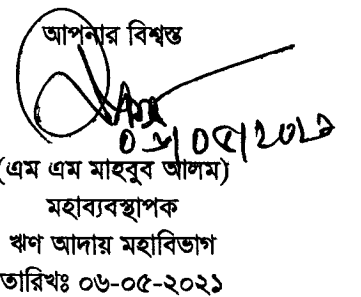 আপনার বিশ্বস্ত
০৬/০৫/২০২১
(এম এম মাহবুব আলম)
মহাব্যবস্থাপক
ঋণ আদায় মহাবিভাগ
তারিখঃ ০৬-০৫-২০২১